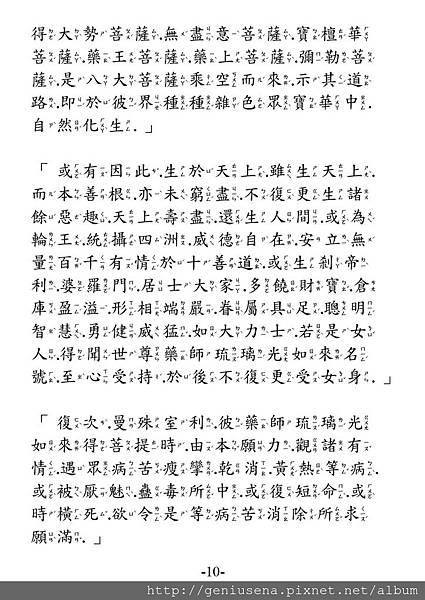 得大勢菩薩.無盡意菩薩.寶檀華
菩薩.藥王菩薩.藥上菩薩.彌勒菩
薩.是八大菩薩乘空而來.示其道
路.即於彼界種種雜色眾寶華中.
自然化生.」
「或有因此.生於天上.雖生天上.
而本善根.亦未窮盡.不復更生諸
餘惡趣.天上壽盡.還生人間.或為
輪王.統攝四洲.威德自在.安立無
量百千有情.於十善道.或生剎帝
利.婆羅門.居士大家.多饒財寶.倉
庫盈溢.形相端嚴.眷屬具足.聰明
智慧.勇健威猛.如大力士.若是女
人.得聞世尊藥師琉璃光如來名
號.至心受持.於後不復更受女身.」
「復次.曼殊室利.彼藥師琉璃光
如來得菩提時.由本願力.觀諸有
情.遇眾病苦.瘦攣.乾消.黃熱等病.
或被厭魅.蠱毒所中.或復短命.或
時橫死.欲令是等病苦消除.所求
願滿.」
-10-
http://geniusena.pixnet.net/album